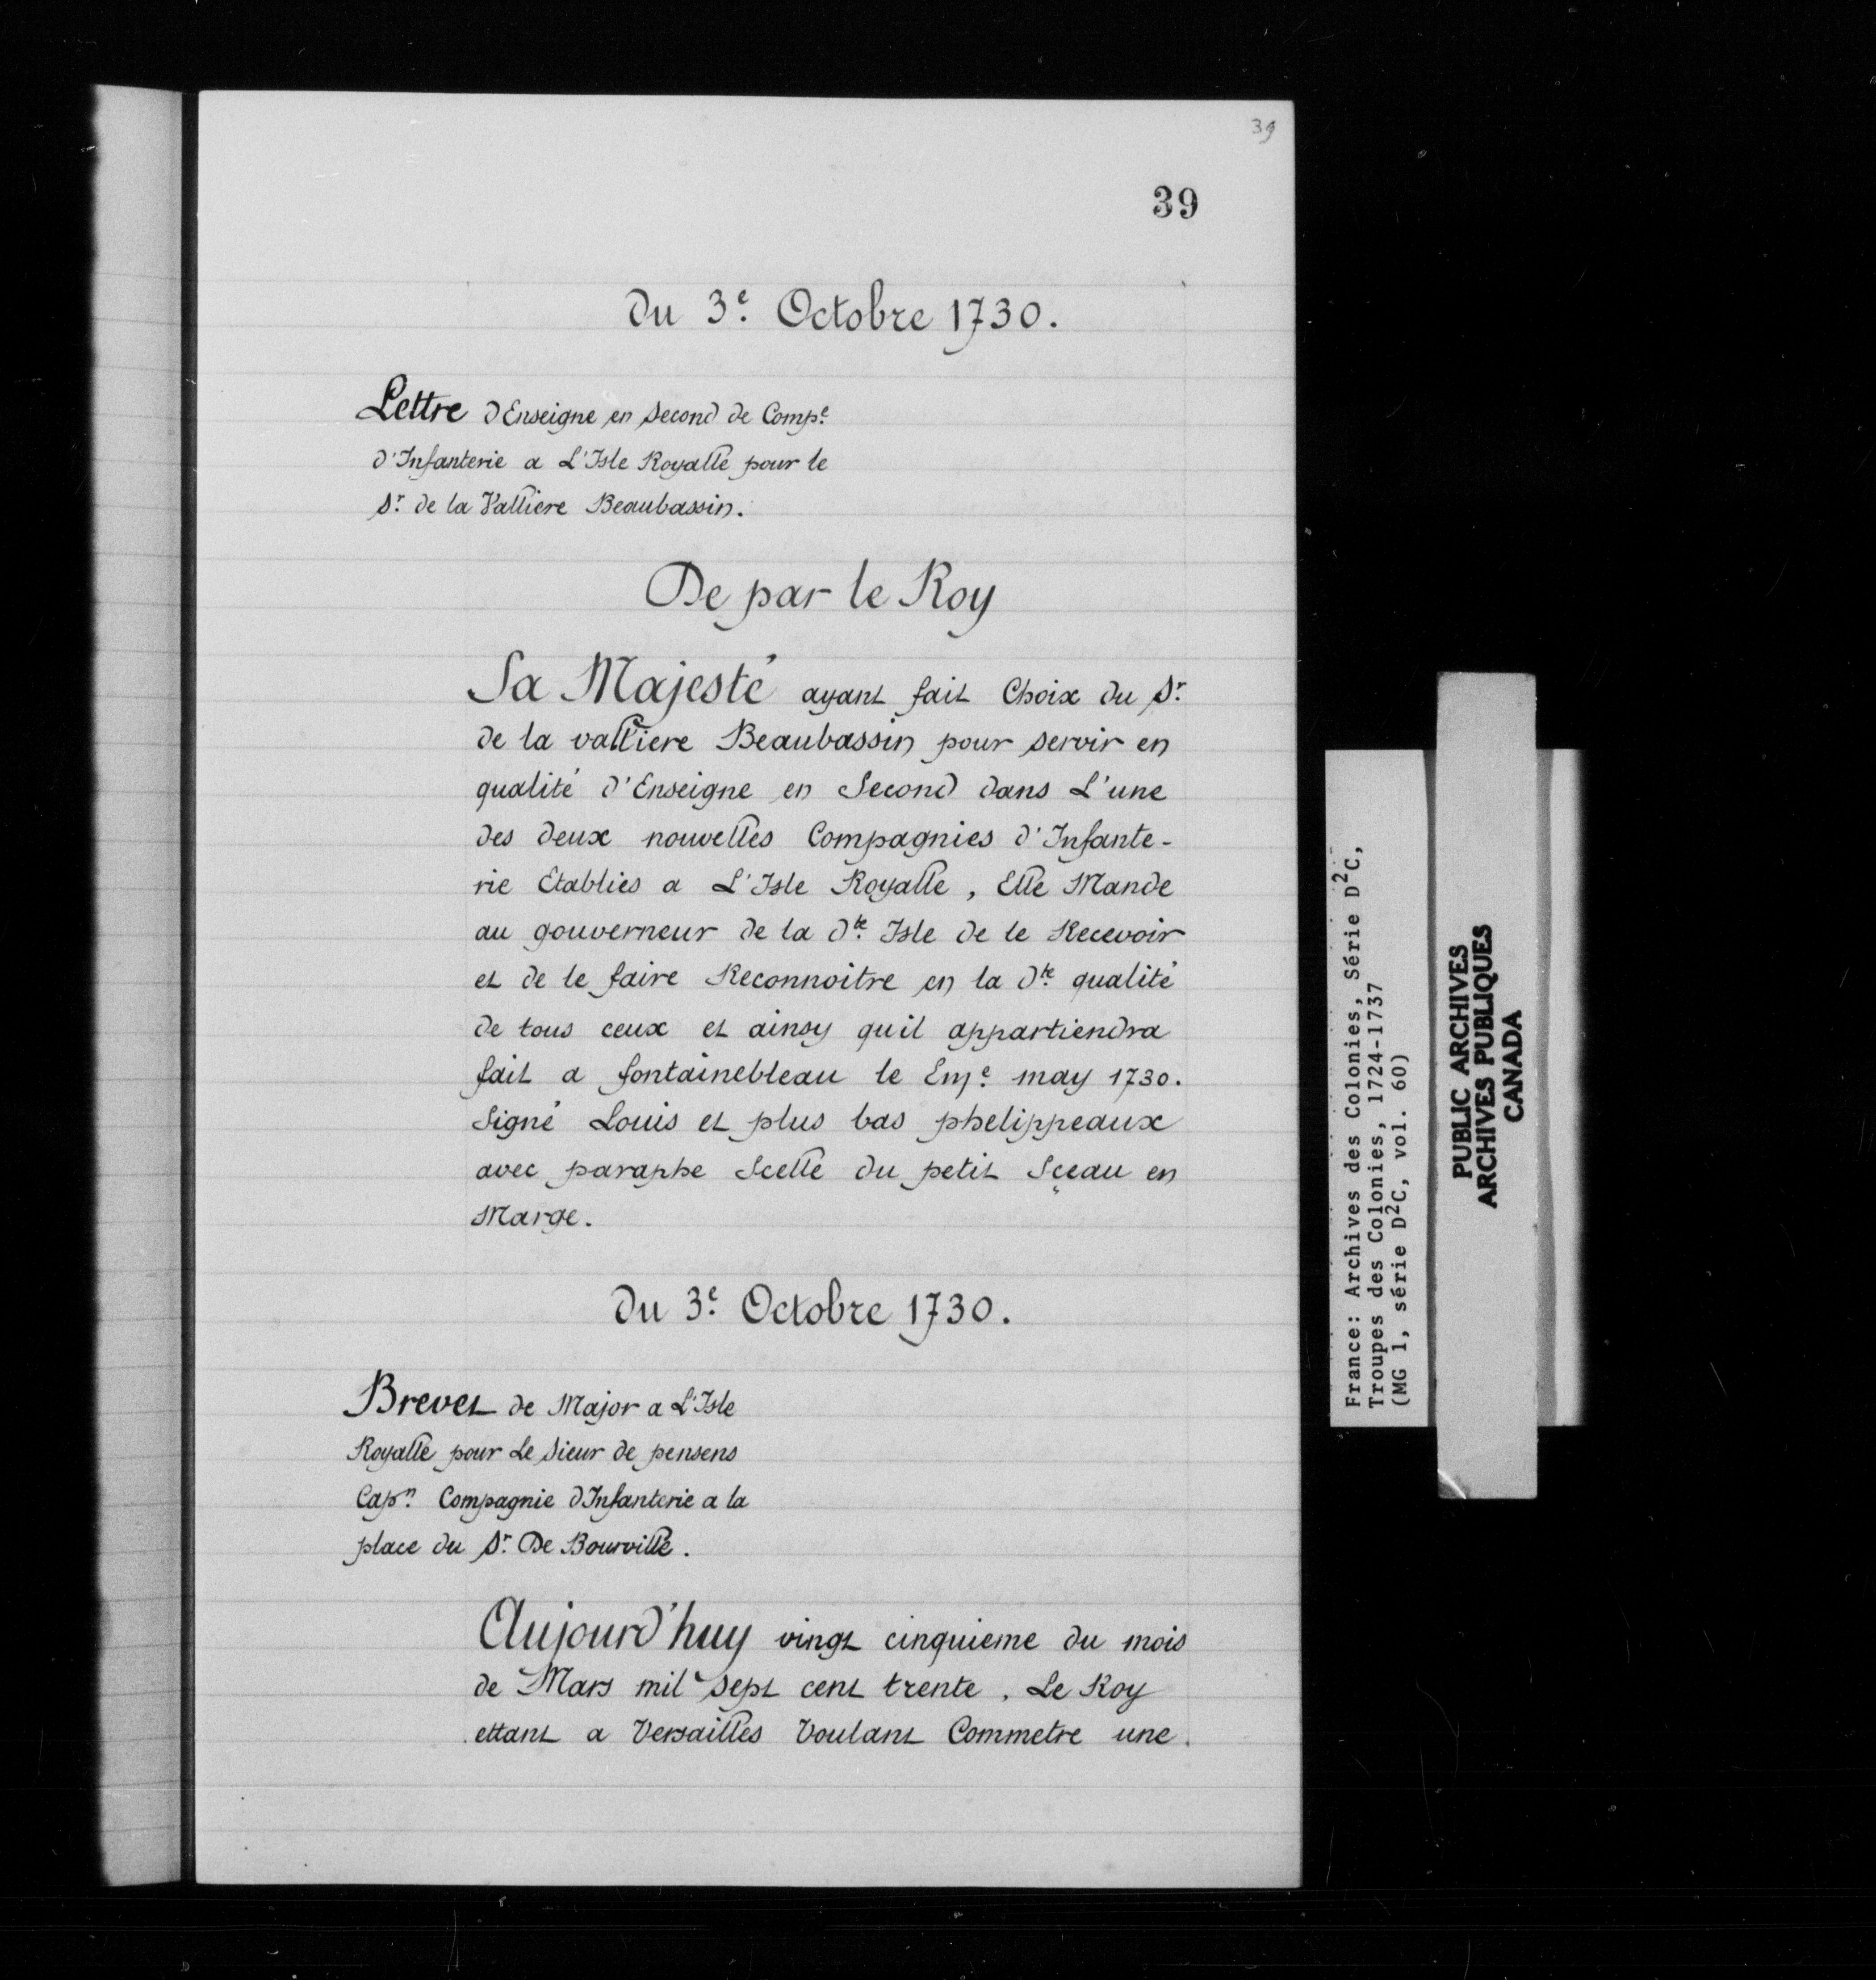 39
39
Du 3e. Octobre 1730.
Lettre d'Enseigne en Second de Compe.
d'Infanterie a L'Isle Royalle pour le
Sr. de la Valliere Beaubassin.
De par le Roy
Sa Majesté ayant fait Choix du Sr.
de la valliere Beaubassin pour servir en
qualité d'Enseigne en Second dans L'une
des deux nouvelles Compagnies d'Infante-
rie Etablies a L'Isle Royalle, Elle Mande
au gouverneur de la dte. Isle de le Recevoir
et de le faire Reconnoitre en la dte. qualité
de tous ceux et ainsy quil appartiendra
fait a fontainebleau le may 1730.
Signé Louis et plus bas phelippeaux
avec paraphe Scellé du petit Sçeau en
Marge.
Du 3e. Octobre 1730.
Brevet de Major a L'Isle
Royalle pour Le Sieur de pensens
Capn. Compagnie d'Infanterie a la
place du Sr. De Bourville.
Aujourd'huy vingt cinquieme du mois
de Mars mil sept cent trente, Le Roy
ettant a Versailles Voulant Commetre une
France: Archives des Colonies, Série D2C,
Troupes des Colonies, 1724-1737
(MG 1, série D2C, vol. 60)
PUBLIC ARCHIVES
ARCHIVES PUBLIQUES
CANADA